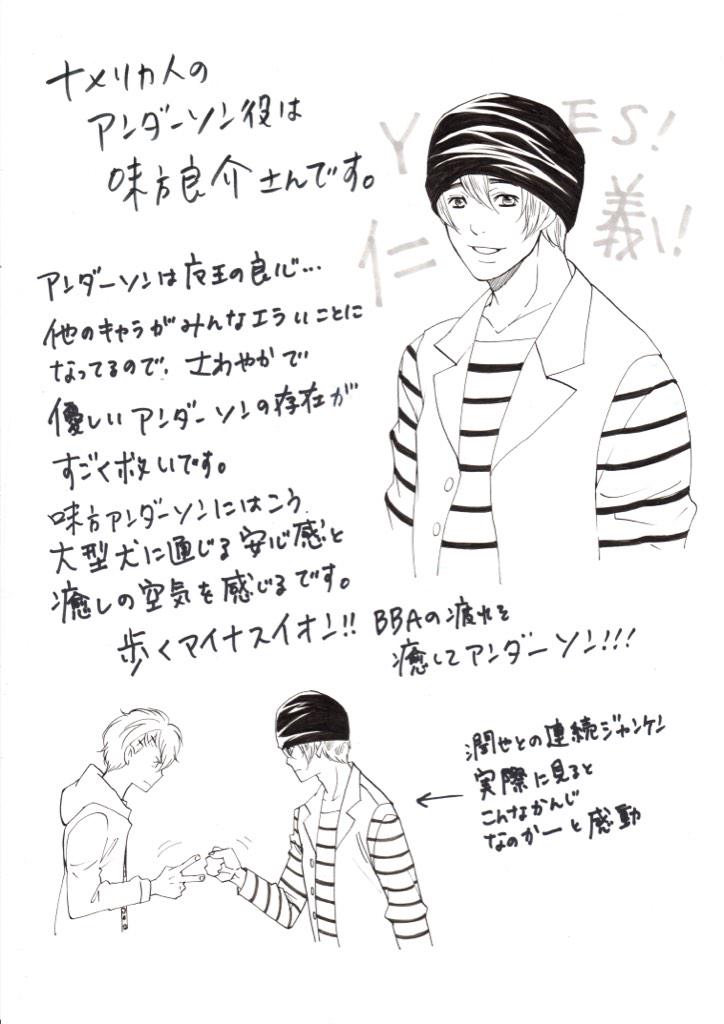 ナメリカ人の
アンダーソン役は
味方良介さんです。
YES!
仁義い!
アンダーソンは夜王の良心…
他のキャラがみんなエラいことに
なってるので、さわやかで
優しいアンダーソンの存在が
すごく救いです。
味方アンダーソンにはこう
大型犬に通じる安心感と
癒しの空気を感じるです。
歩くマイナスイオン!! BBAの疲れを
癒してアンダーソン!!!
潤也との連続ジャンケン
実際に見ると
こんなかんじ
なのかーと感動